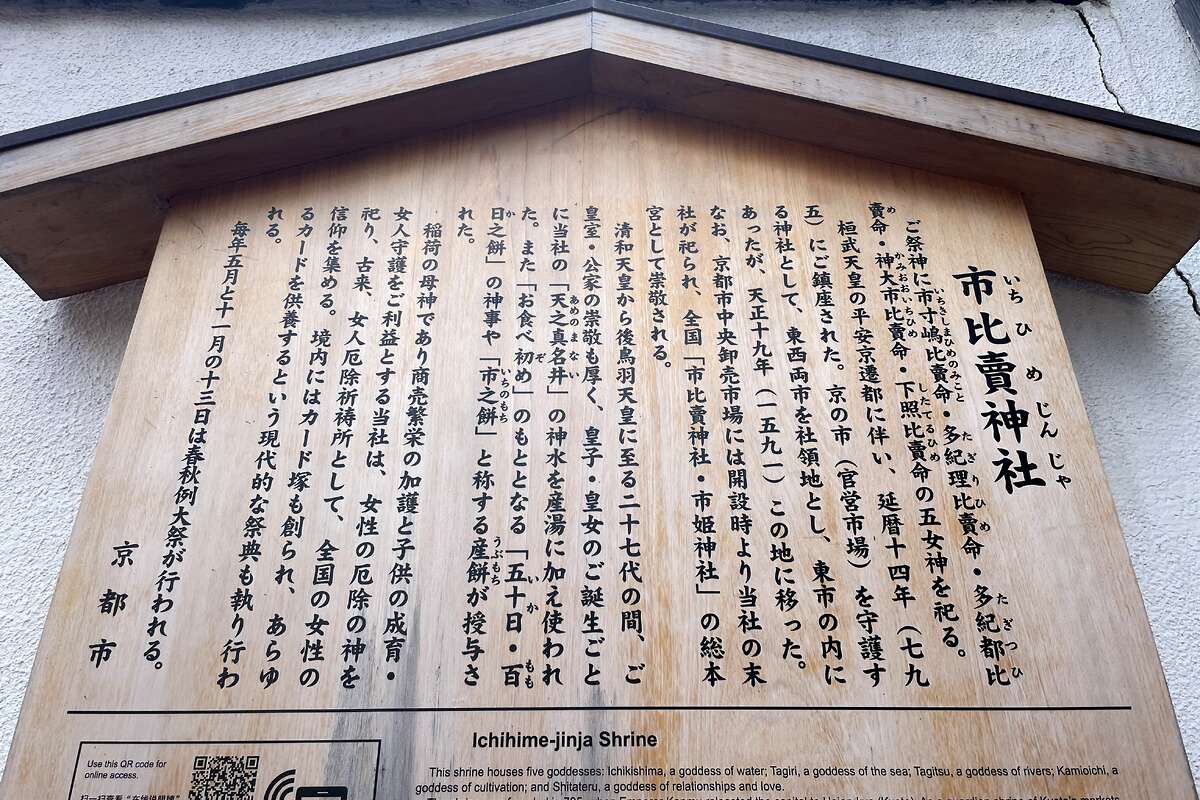 市比賣神社
いちひめじんじゃ
ご祭神に市寸嶋比賣命・多紀理比賣命・多紀都比
いちきしまひめのみこと
たぎりひめ
たぎつひ
賣命・神大市比賣命・下照比賣命の五女神を祀る。
め
かみおおいちひめ
したてるひめ
桓武天皇の平安京遷都に伴い、延暦十四年（七九
五）にご鎮座された。京の市（官営市場）を守護す
る神社として、東西両市を社領地とし、東市の内に
あったが、天正十九年（一五九一）この地に移った。
なお、京都市中央卸売市場には開設時より当社の末
社が祀られ、全国「市比賣神社・市姫神社」の総本
宮として崇敬される。
清和天皇から後鳥羽天皇に至る二十七代の間、ご
皇室・公家の崇敬も厚く、皇子・皇女のご誕生ごと
に当社の「天之真名井」の神水を産湯に加え使われ
あめのまない
た。また「お食べ初め」のもととなる「五十日・百
ぞ
いか
もも
日之餅」の神事や「市之餅」と称する産餅が授与さ
か
いちのもち
うぶもち
れた。
稲荷の母神であり商売繁栄の加護と子供の成育・
女人守護をご利益とする当社は、女性の厄除の神を
祀り、古来、女人厄除祈祷所として、全国の女性の
信仰を集める。境内にはカード塚も創られ、あらゆ
るカードを供養するという現代的な祭典も執り行わ
れる。
毎年五月と十一月の十三日は春秋例大祭が行われる。
京都市
Ichihime-jinja Shrine
Use this QR code for
online access.
This shrine houses five goddesses: Ichikishima, a goddess of water; Tagiri, a goddess of the sea; Tagitsu, a goddess of rivers; Kamioichi, a
goddess of cultivation; and Shitateru, a goddess of relationships and love.